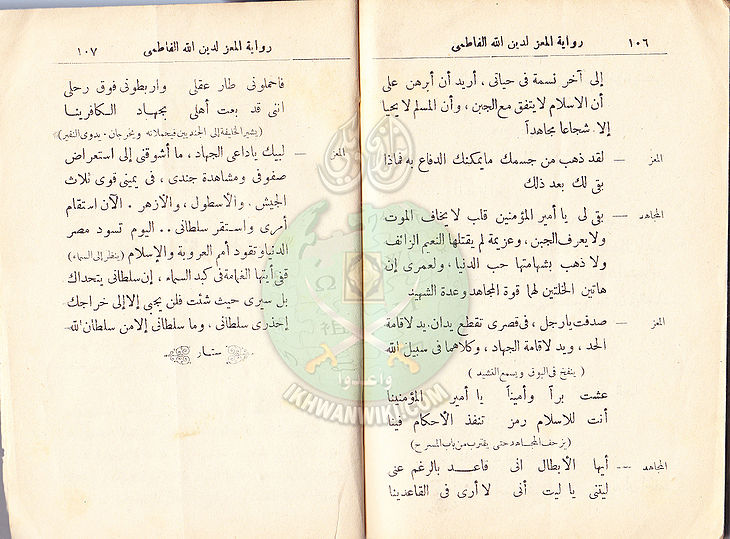 ١٠٦ رواية المعز لدين الله الفاطمى
إلى آخر نسمة فى حياتى ، أريد أن أبرهن على
أن الاسلام لا يتفق مع الجبن ، وأن المسلم لا يحيا
إلا شجاعا مجاهداً
المعز — لقد ذهب من جسمك ما يمكنك الدفاع به فماذا
بقى لك بعد ذلك
المجاهد — بقى لى يا أمير المؤمنين قلب لا يخاف الموت
ولا يعرف الجبن ، وعزيمة لم يقتلها النعيم الزائف
ولا ذهب بشهامتها حب الدنيا ، ولعمرى إن
هاتين الخلتين لهما قوة المجاهد وعدة الشهيد
المعز — صدقت يا رجل ، فى قصرى تقطع يدان . يد لاقامة
الحد ، ويد لاقامة الجهاد ، وكلاهما فى سبيل الله
( ينفخ فى البوق ويسمع النشيد )
عشت براً وأميناً يا أمير المؤمنينا
أنت للاسلام رمز تنفذ الأحكام فينا
(يزحف المجاهد حتى يقترب من باب المسرح)
المجاهد — أيها الأبطال انى قاعد بالرغم عنى
ليتنى يا ليت أنى لا أرى فى القاعدينا
رواية المعز لدين الله الفاطمى ١٠٧
فاحملونى طار عقلى واربطونى فوق رحلى
اننى قد بعت أهلى بجهاد الكافرينا
(يشير الخليفة إلى الجنديين فيحملانه ويخرجان . يدوى النفير)
المعز — لبيك يا داعى الجهاد ، ما أشوقنى إلى استعراض
صفوفى ومشاهدة جندى ، فى يمينى قوى ثلاث
الجيش . والأسطول ، والأزهر . الآن استقام
أمرى واستقر سلطانى .. اليوم تسود مصر
الدنيا وتقود أمم العروبة والاسلام (ينظر إلى السماء)
قفى أيتها الغمامة فى كبد السماء ، إن سلطانى يتحداك
بل سيرى حيث شئت فلن يجبى إلا إلى خراجك
إحذرى سلطانى . وما سلطانى إلا من سلطان الله
ستار
واعدوا
IKHWANWIKI.COM